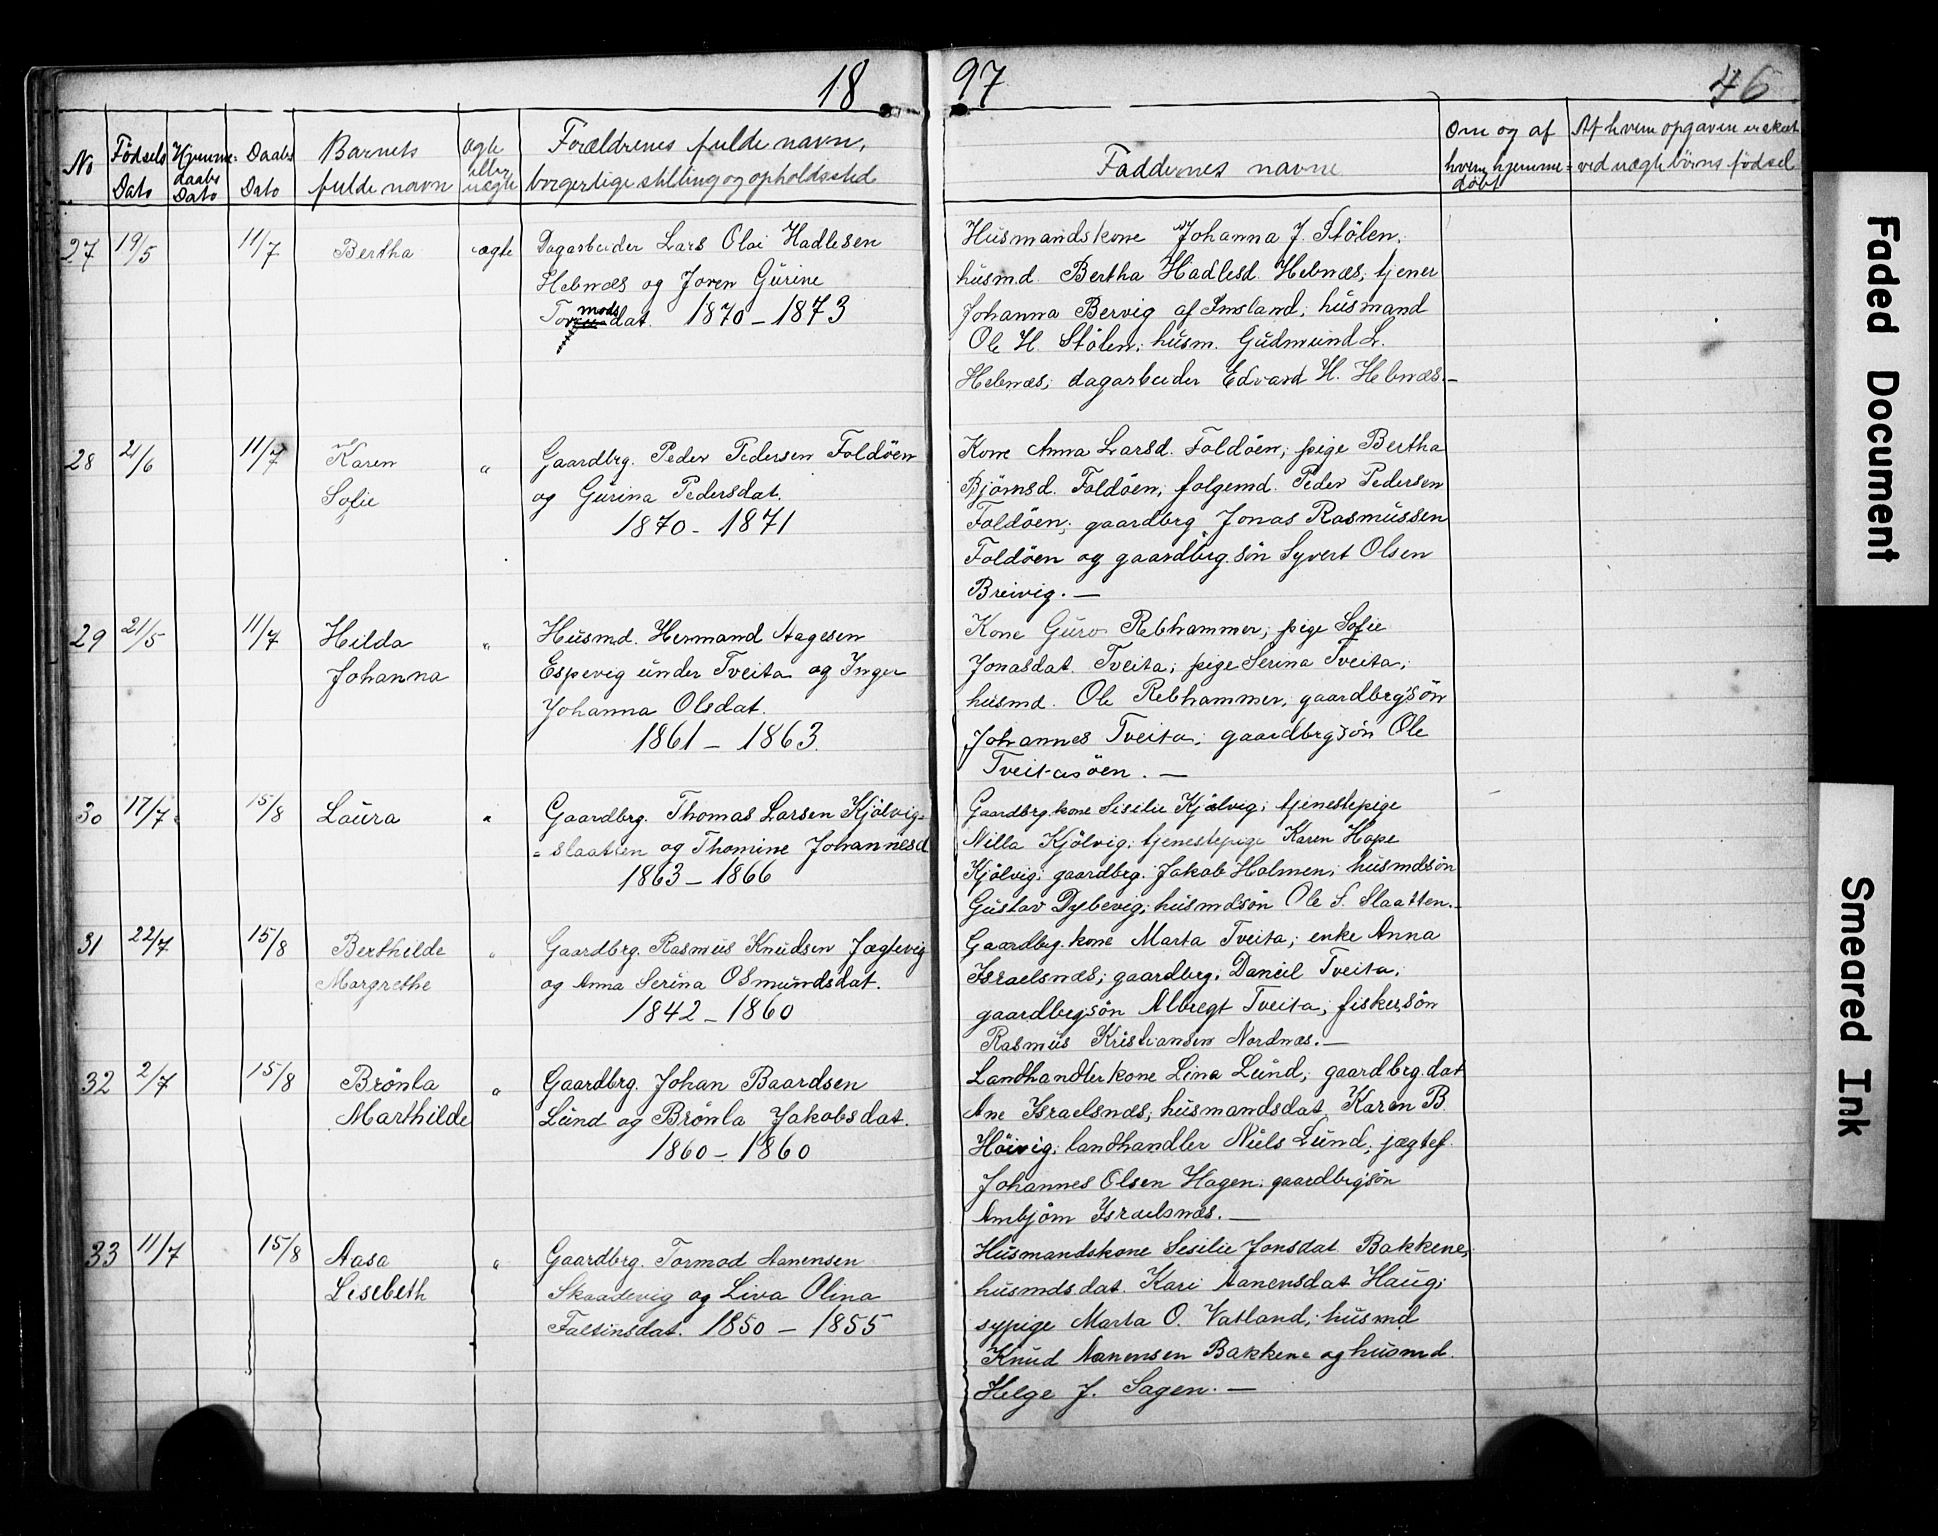 18 97 46
No Fødsels Dato Hjemme- daabs Dato Daabs Dato Barnets fulde navn ægte eller uægte Forældrenes fulde navn, borgerlige stilling og opholdssted Faddernes navne Om og af hvem hjemme- døbt Af hvem opgaven er skeet ved uægte børns fødsel
27 19/5 11/7 Bertha ægte
Dagarbeider Lars Olai Hadlesen
Hebnæs og Joren Gurine
Tormodsdat. 1870 - 1873
Husmandskone Johanna J. Stölen;
husmd. Bertha Hadlesd. Hebnæs; tjener
Johanna Bervig af Imsland; husmand
Ole H. Stölen; husm. Gudmund L.
Hebnæs; dagarbeider Edvard H. Hebnæs. —
28 21/6 11/7 Karen Sofie "
Gaardbrg. Peder Pedersen Foldöen
og Gurina Pedersdat.
1870 - 1871
Kone Anna Larsd. Foldöen; pige Bertha
Björnsd. Foldöen; folgemd. Peder Pedersen
Foldöen; gaardbrg Jonas Rasmussen
Foldöen og gaardbrg.sön Syvert Olsen
Breivig. —
29 21/5 11/7 Hilda Johanna "
Husmd. Hermand Aagesen
Espevig under Tveita og Inger
Johanna Olsdat.
1861 - 1863.
Kone Guro Rebhammer; pige Sofie
Jonasdat. Tveita; pige Serina Tveita;
husmd. Ole Rebhammer; gaardbrgsön
Johannes Tveita; gaardbrgsön Ole
Tveitasöen. —
30 17/7 15/8 Laura "
Gaardbrg. Thomas Larsen Kjölvig-
=slaatten og Thomine Johannesd
1863 - 1866
Gaardbrg.kone Sisilie Kjölvig; tjenestepige
Nilla Kjölvig; tjenestepige Karen Hope
Kjölvig; gaardbrg. Jakob Holmen; husmdsön
Gustav Dybevig; husmdsön Ole S. Slaatten. -
31 22/7 15/8 Berthilde Margrethe "
Gaardbrg. Rasmus Knudsen Jægtevig
og Anna Serina Osmundsdat.
1842 - 1860
Gaardbrg.kone Marta Tveita; enke Anna
Israelsnæs; gaardbrg. Daneil Tveita;
gaardbrgsön Albregt Tveita; fiskersön
Rasmus Kristiansen Nordnæs. —
32 2/7 15/8 Brönla Marthilde "
Gaardbrg. Johan Baardsen
Lund og Brönla Jakobsdat.
1860 - 1860
Landhandlerkone Lina Lund; gaardbrg.dat
Ane Israelsnæs; husmandsdat. Karen B.
Höivig; landhandler Niels Lund; jægtef.
Johannes Olsen Hagen; gaardbrgsön
Ambjörn Israelsnæs. —
33 11/7 15/8 Aasa Lisebeth "
Gaardbrg. Tormod Aanensen
Skaadevig og Liva Olina
Faltinsdat. 1850 - 1855
Husmandskone Sesilie Jonsdat. Bakkene;
husmdsdat. Kari Aanensdat Haug;
sypige Marta O. Vatland; husmd.
Knud Aanensen Bakkene og husmd.
Helge J. Sagen. —
Faded Document
Smeared Ink